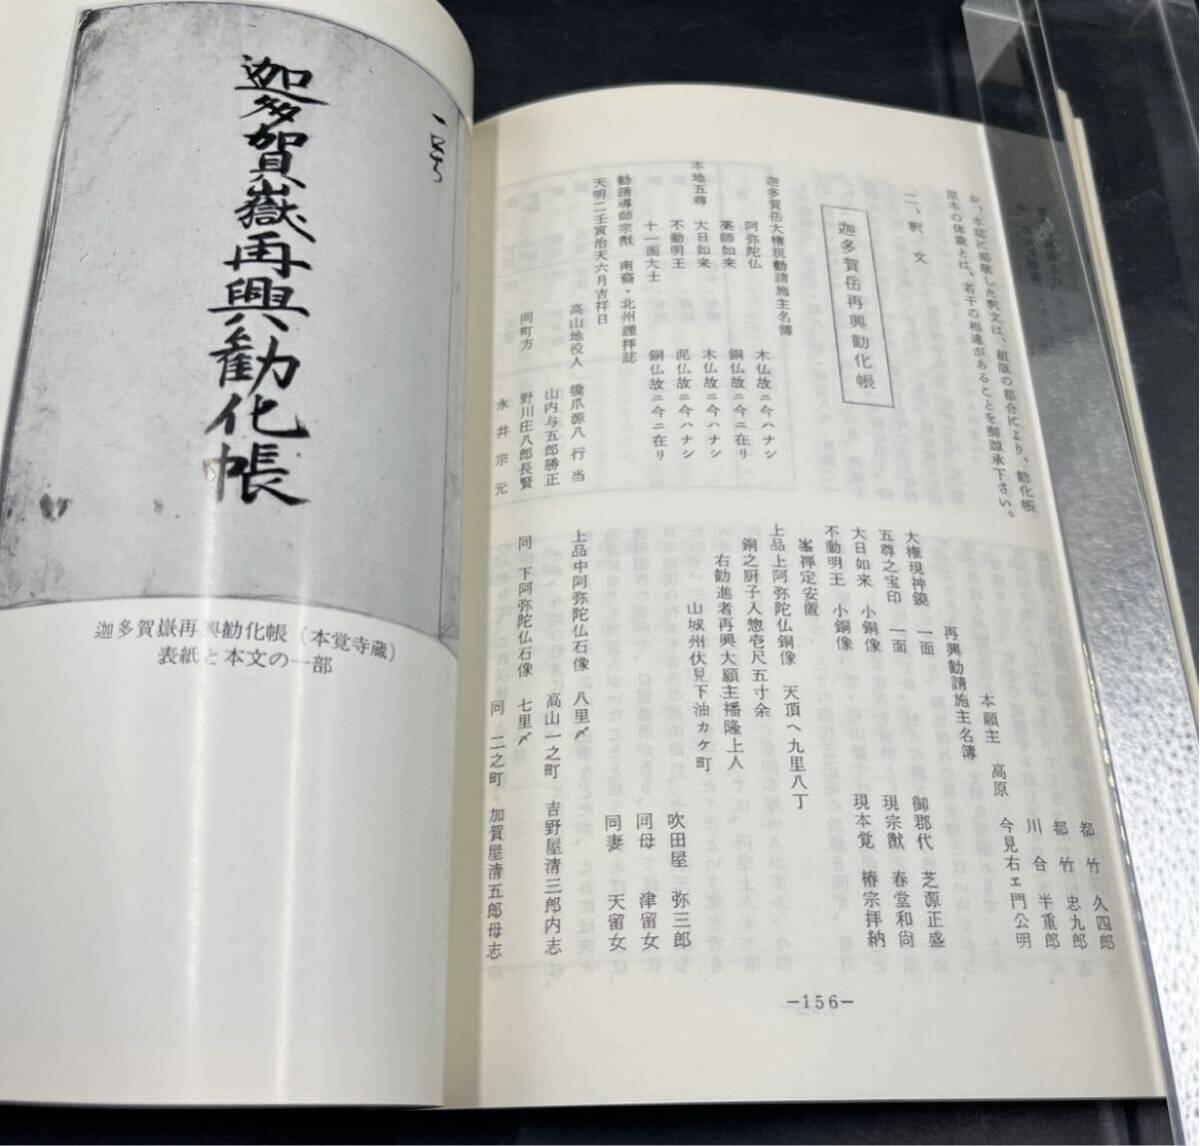 迦多賀嶽再興勧化帳
迦多賀嶽再興勧化帳（本覚寺蔵）
表紙と本文の一部
お、本誌に掲載した釈文は、組版の都合により、勧化帳
原本の体裁とは、若干の相違があることを御諒承下さい。
二、釈文
迦多賀岳再興勧化帳
迦多賀岳大権現勧請施主名簿
阿弥陀仏　木仏故ニ今ハナシ
薬師如来　銅仏故ニ今ニ在リ
本地五尊　大日如来　木仏故ニ今ハナシ
不動明王　泥仏故ニ今ハナシ
十一面大士　銅仏故ニ今ニ在リ
勧請導師宗猷　南裔・北州謹拝誌
天明二壬寅治天六月吉祥日
高山地役人　橋爪源八行当
山内与五郎勝正
同町方　野川庄八郎長賢
永井宗元
都竹久四郎
都竹忠九郎
川合半重郎
本願主　高原　今見右ェ門公明
再興勧請施主名簿
大権現神鏡　一面　御郡代　芝源正盛
五尊之宝印　一面　現宗猷　春堂和尚
大日如来　小銅像　現本覚　椿宗拝納
不動明王　小銅像
峯禅定安置
上品上阿弥陀仏銅像　天頂へ九里八丁
銅之厨子入惣壱尺五寸余
右勧進者再興大願主播隆上人
山城州伏見下油カケ町
吹田屋　弥三郎
同母　津留女
同妻　天留女
上品中阿弥陀仏石像　八里〆　高山一之町　吉野屋清三郎内志
同　下阿弥陀仏石像　七里〆　同　二之町　加賀屋清五郎母志
―156―